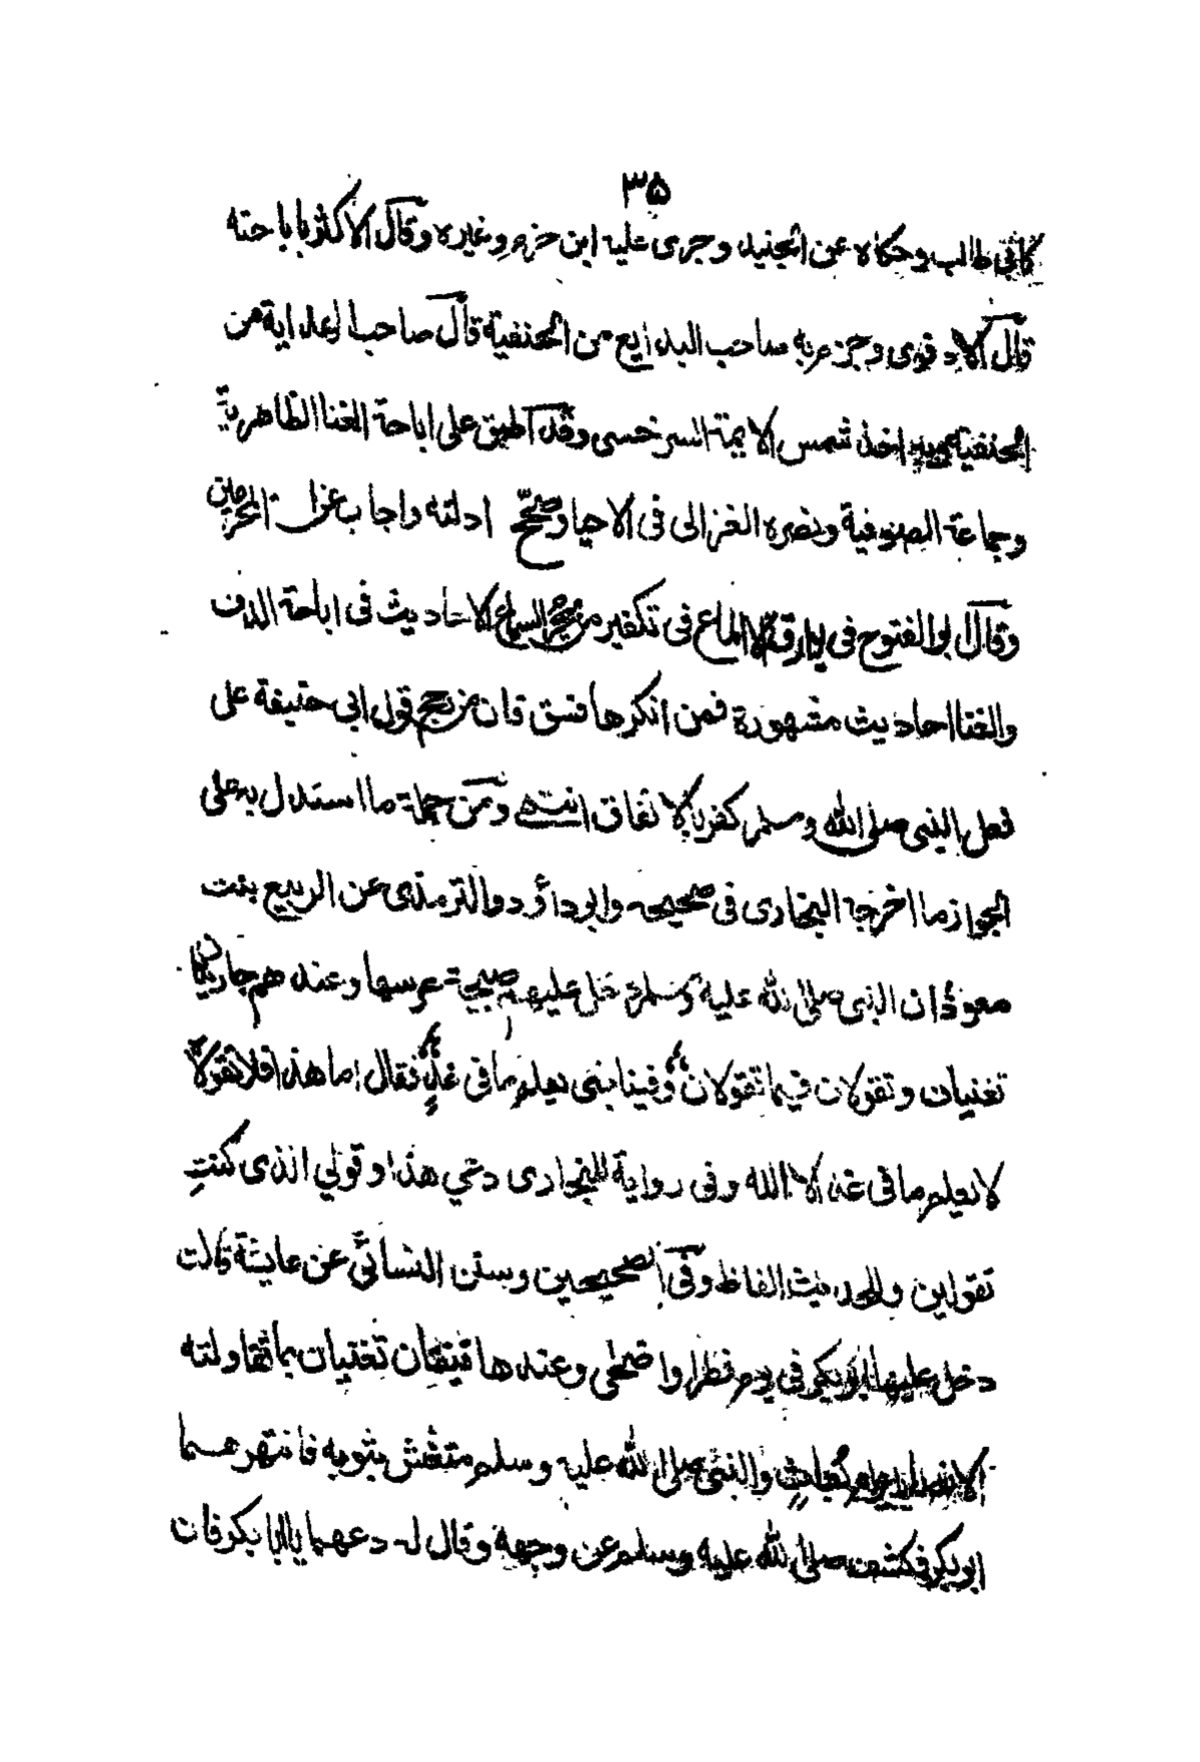 ٣٥
كابي طالب وحكاه عن الجنيد وجرى عليه ابن حزم وغيره وقال الاكثر باباحته
قال الادفوى وجزم به صاحب البدايع من الحنفية قال صاحب الهداية من
الحنفية وبه اخذ شمس الايمة السرخسى وقد اطبق على اباحة الغنا الظاهرية
وجماعة الصوفية ونصره الغزالى فى الاحيا وصحح ادلته واجاب عن المحرمين
وقال ابو الفتوح فى بوارق الالماع فى تكفير من يحرم السماع الاحاديث فى اباحة الدف
والغنا احاديث مشهورة فمن انكرها فسق فان من رجح قول ابى حنيفة على
فعل النبى صلى الله وسلم كفر بالاتفاق انتهى ومن جملة ما استدل به على
الجواز ما اخرجه البخارى فى صحيحه وابو داؤد والترمذى عن الربيع بنت
معوذ ان النبى صلى الله عليه وسلم دخل عليها صبيحة عرسها وعندهم جاريتان
تغنيان وتقولان فيما تقولان وفينا نبى يعلم ما فى غد فقال اما هذا فلا تقولا
لا يعلم ما فى غد الا الله وفى رواية للبخارى دعي هذا وقولي الذى كنتِ
تقولين وللحديث الفاظ وفى الصحيحين وسنن النسائي عن عايشة قالت
دخل عليها ابو بكر فى يوم فطر او اضحى وعندها قينتان تغنيان بما تقاولته
الانصار يوم بُعاثٍ والنبى صلى الله عليه وسلم متغش بثوبه فانتهرهما
ابو بكر فكشف صلى الله عليه وسلم عن وجهه وقال لـ دعهما يا ابا بكر فان